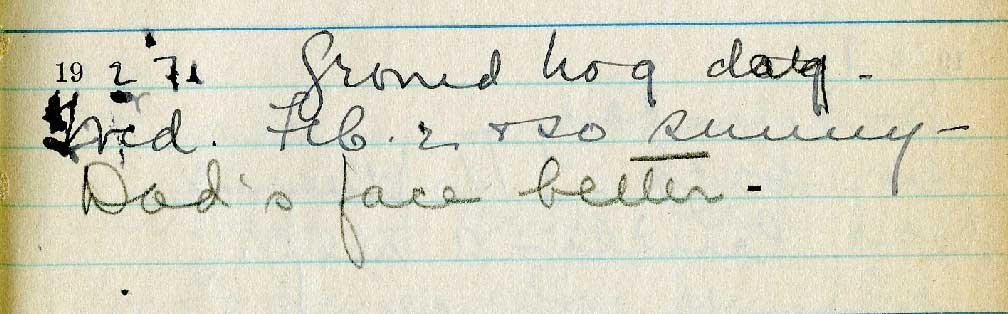 1927 Ground hog day -
Wed. Feb. 2, & so sunny -
Dad's face better -